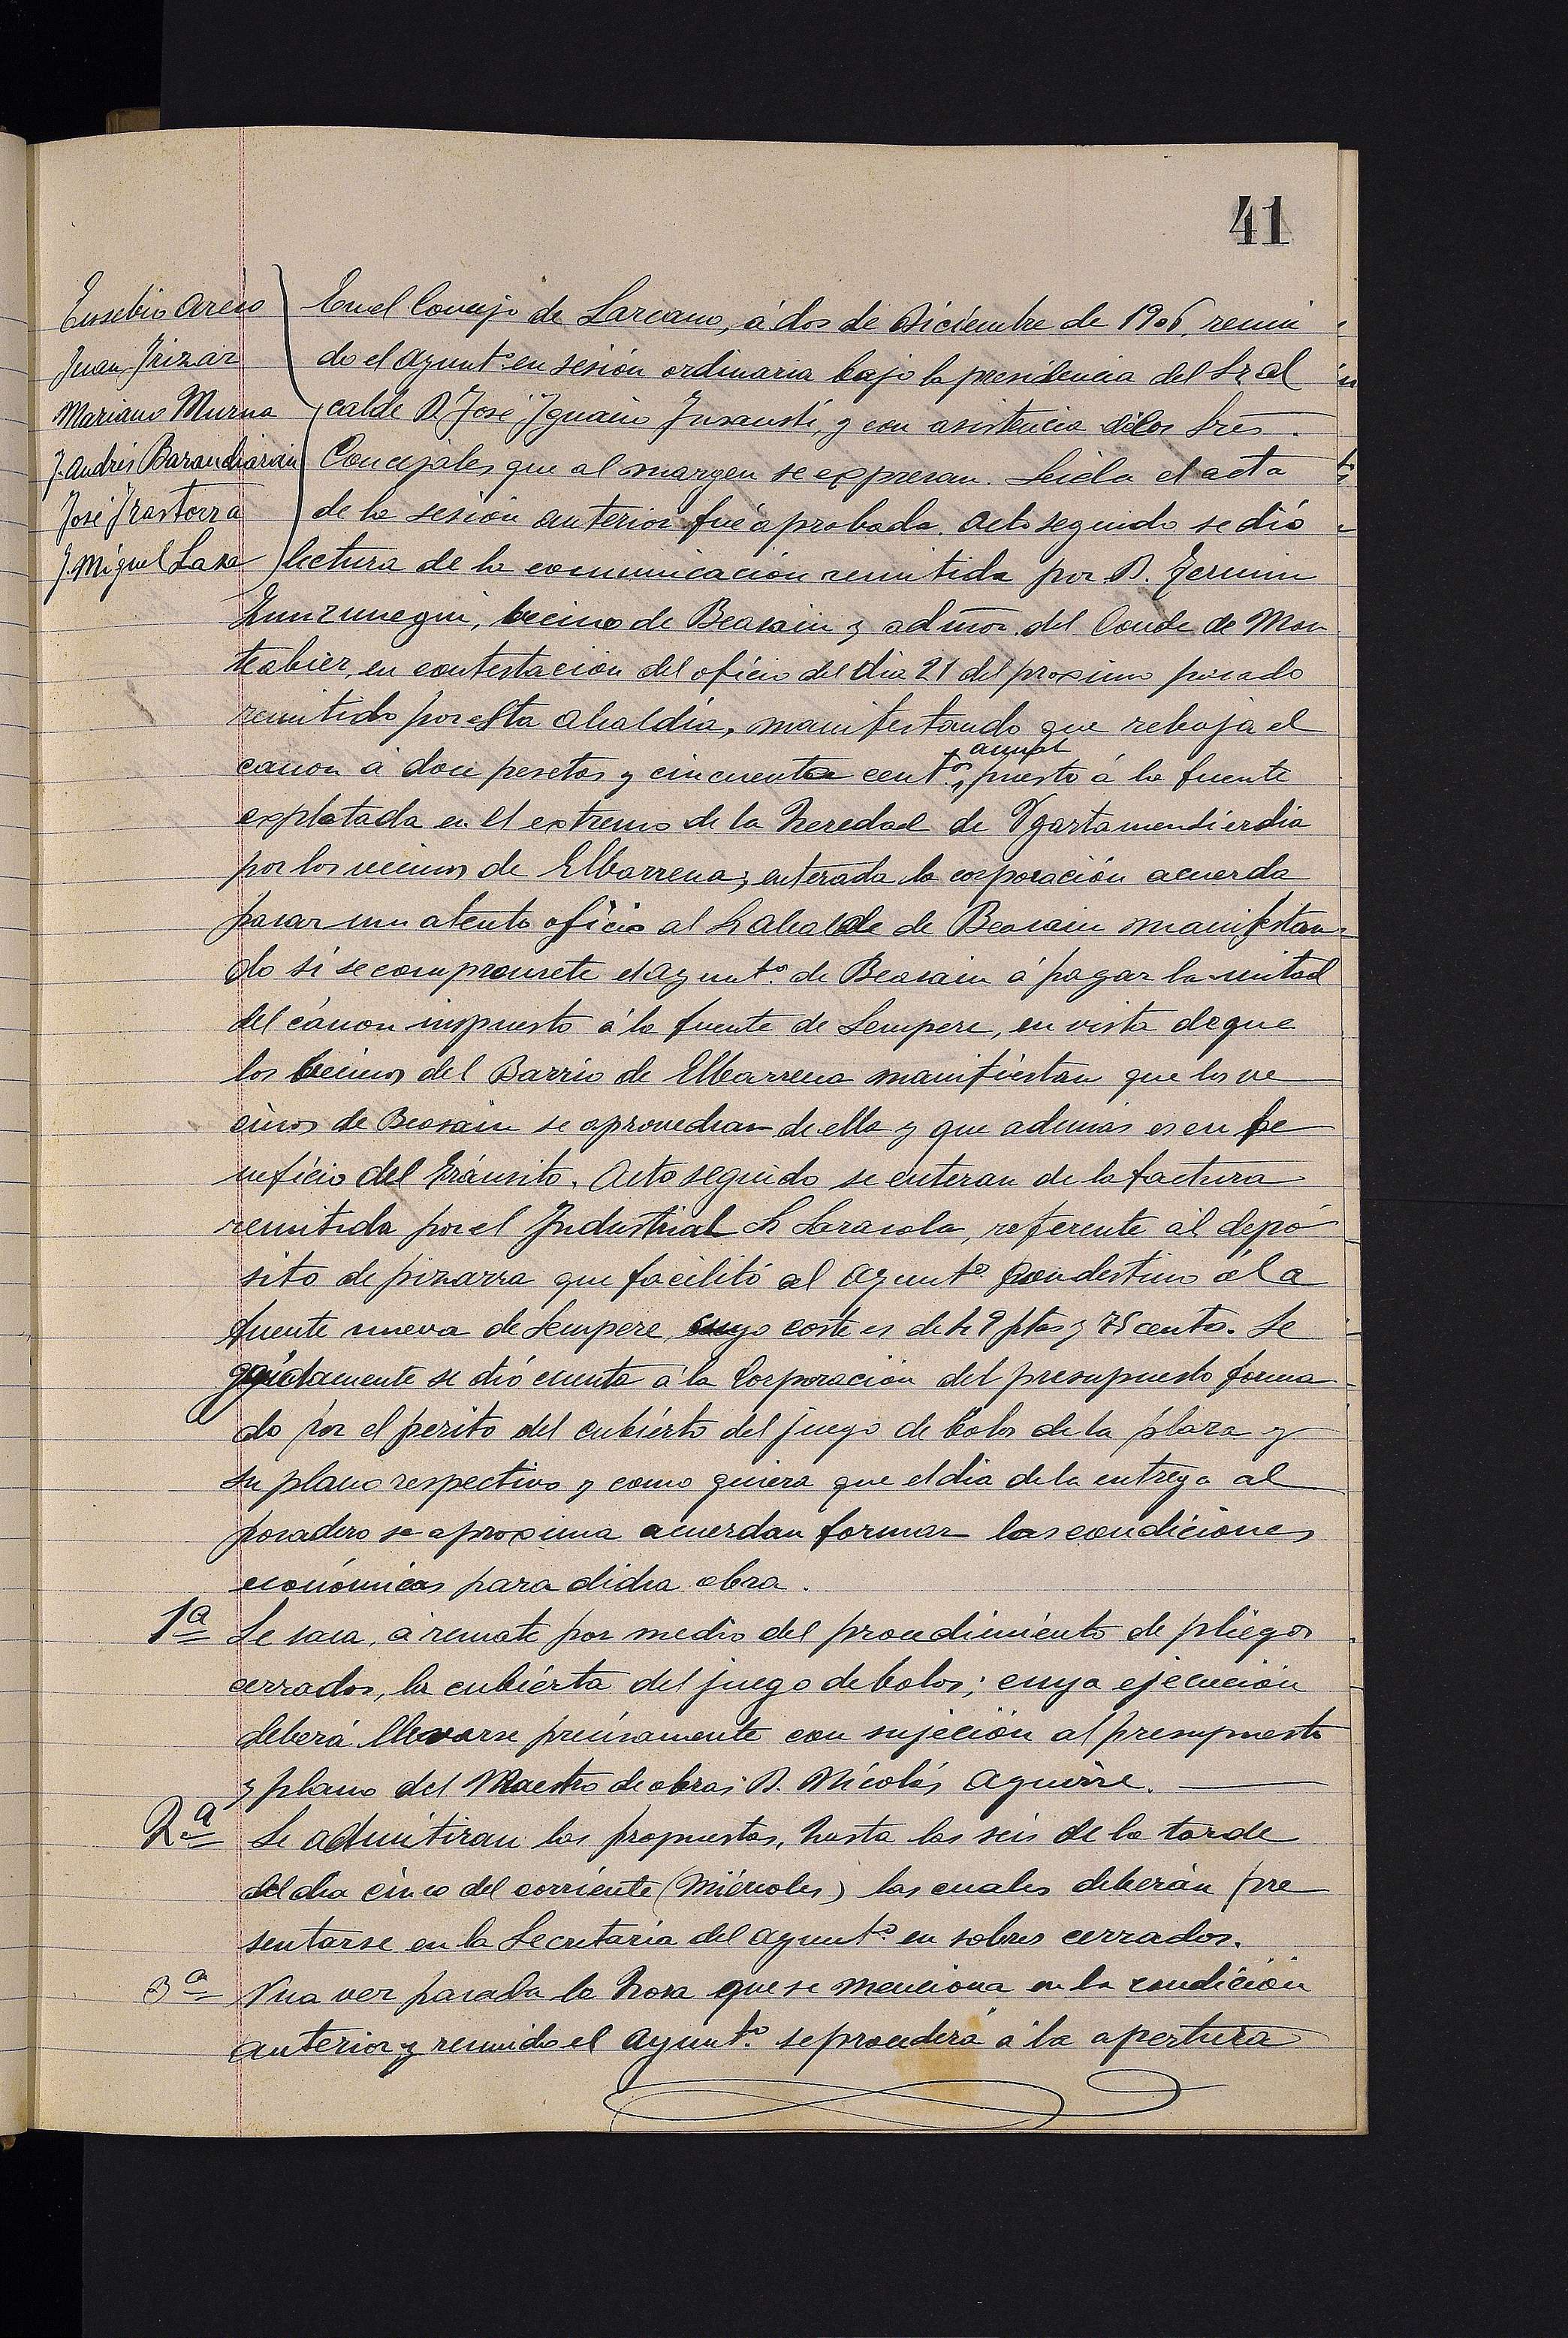 41
Eusebio Areso
Juan Irizar
Mariano Murua
J. Andrés Barandiarán
José Irastorza
J. Miguel Lasa
En el Concejo de Lazcano, á dos de Diciembre de 1906, reuni
do el Ayuntº en sesión ordinaria bajo la presidencia del Sr al
calde D. José Ignacio Insausti, y con asistencia de los Sres.
Concejales que al margen se expresan. Leida el acta
de la sesión anterior fué aprobada. Acto seguido se dió
lectura de la comunicación remitida por D. Fermin
Zunzunegui, becino de Beasain y admor. del Conde de Mon
teabier, en contestación del oficio del dia 21 del proximo pasado
remitido por esta Alcaldia, manifestando que rebaja el
canon á doce pesetas y cincuenta centos, anual puesto á la fuente
explotada en el extremo de la heredad de Ygartamendierdia
por los vecinos de Elbarrena; enterada la corporación acuerda
pasar un atento oficio al Sr Alcalde de Beasain manifestan
do si se compromete el Ayuntº de Beasain á pagar la mitad
del cánon inspuesto á la fuente de Sempere, en vista de que
los becinos del Barrio de Elbarrena manifiestan que los ve
cinos de Beasain se aprovechan de ella y que además es en be
neficio del tránsito. Acto seguido se enteran de la factura
remitida por el Industrial Sr Sarasola, referente al depó
sito de pizarra que facilitó al Ayuntº con destino á la
fuente nueva de Sempere, cuyo coste es de 29 ptas y 75 cents. Se
guidamente se dió cuenta á la Corporación del presupuesto forma
do por el perito del cubierto del juego de bolos de la plaza y
su plano respectivo y como quiera que el dia de la entrega al
posadero se aproxima acuerdan formar las condiciones
económicas para dicha obra.
1ª Se saca, á remate por medio del procedimiento de pliegos
cerrados, la cubierta del juego de bolos; cuya ejecución
deberá llevarse precisamente con sujeción al presupuesto
y plano del Maestro de obras D. Nicolás Aguirre.
2ª Se admitiran las propuestas, hasta las seis de la tarde
del dia cinco del corriente (Miércoles) las cuales deberán pre
sentarse en la Secretaria del Ayuntº en sobres cerrados.
3ª Una vez pasada la hora que se menciona en la condición
anterior y reunido el Ayuntº se procederá á la apertura